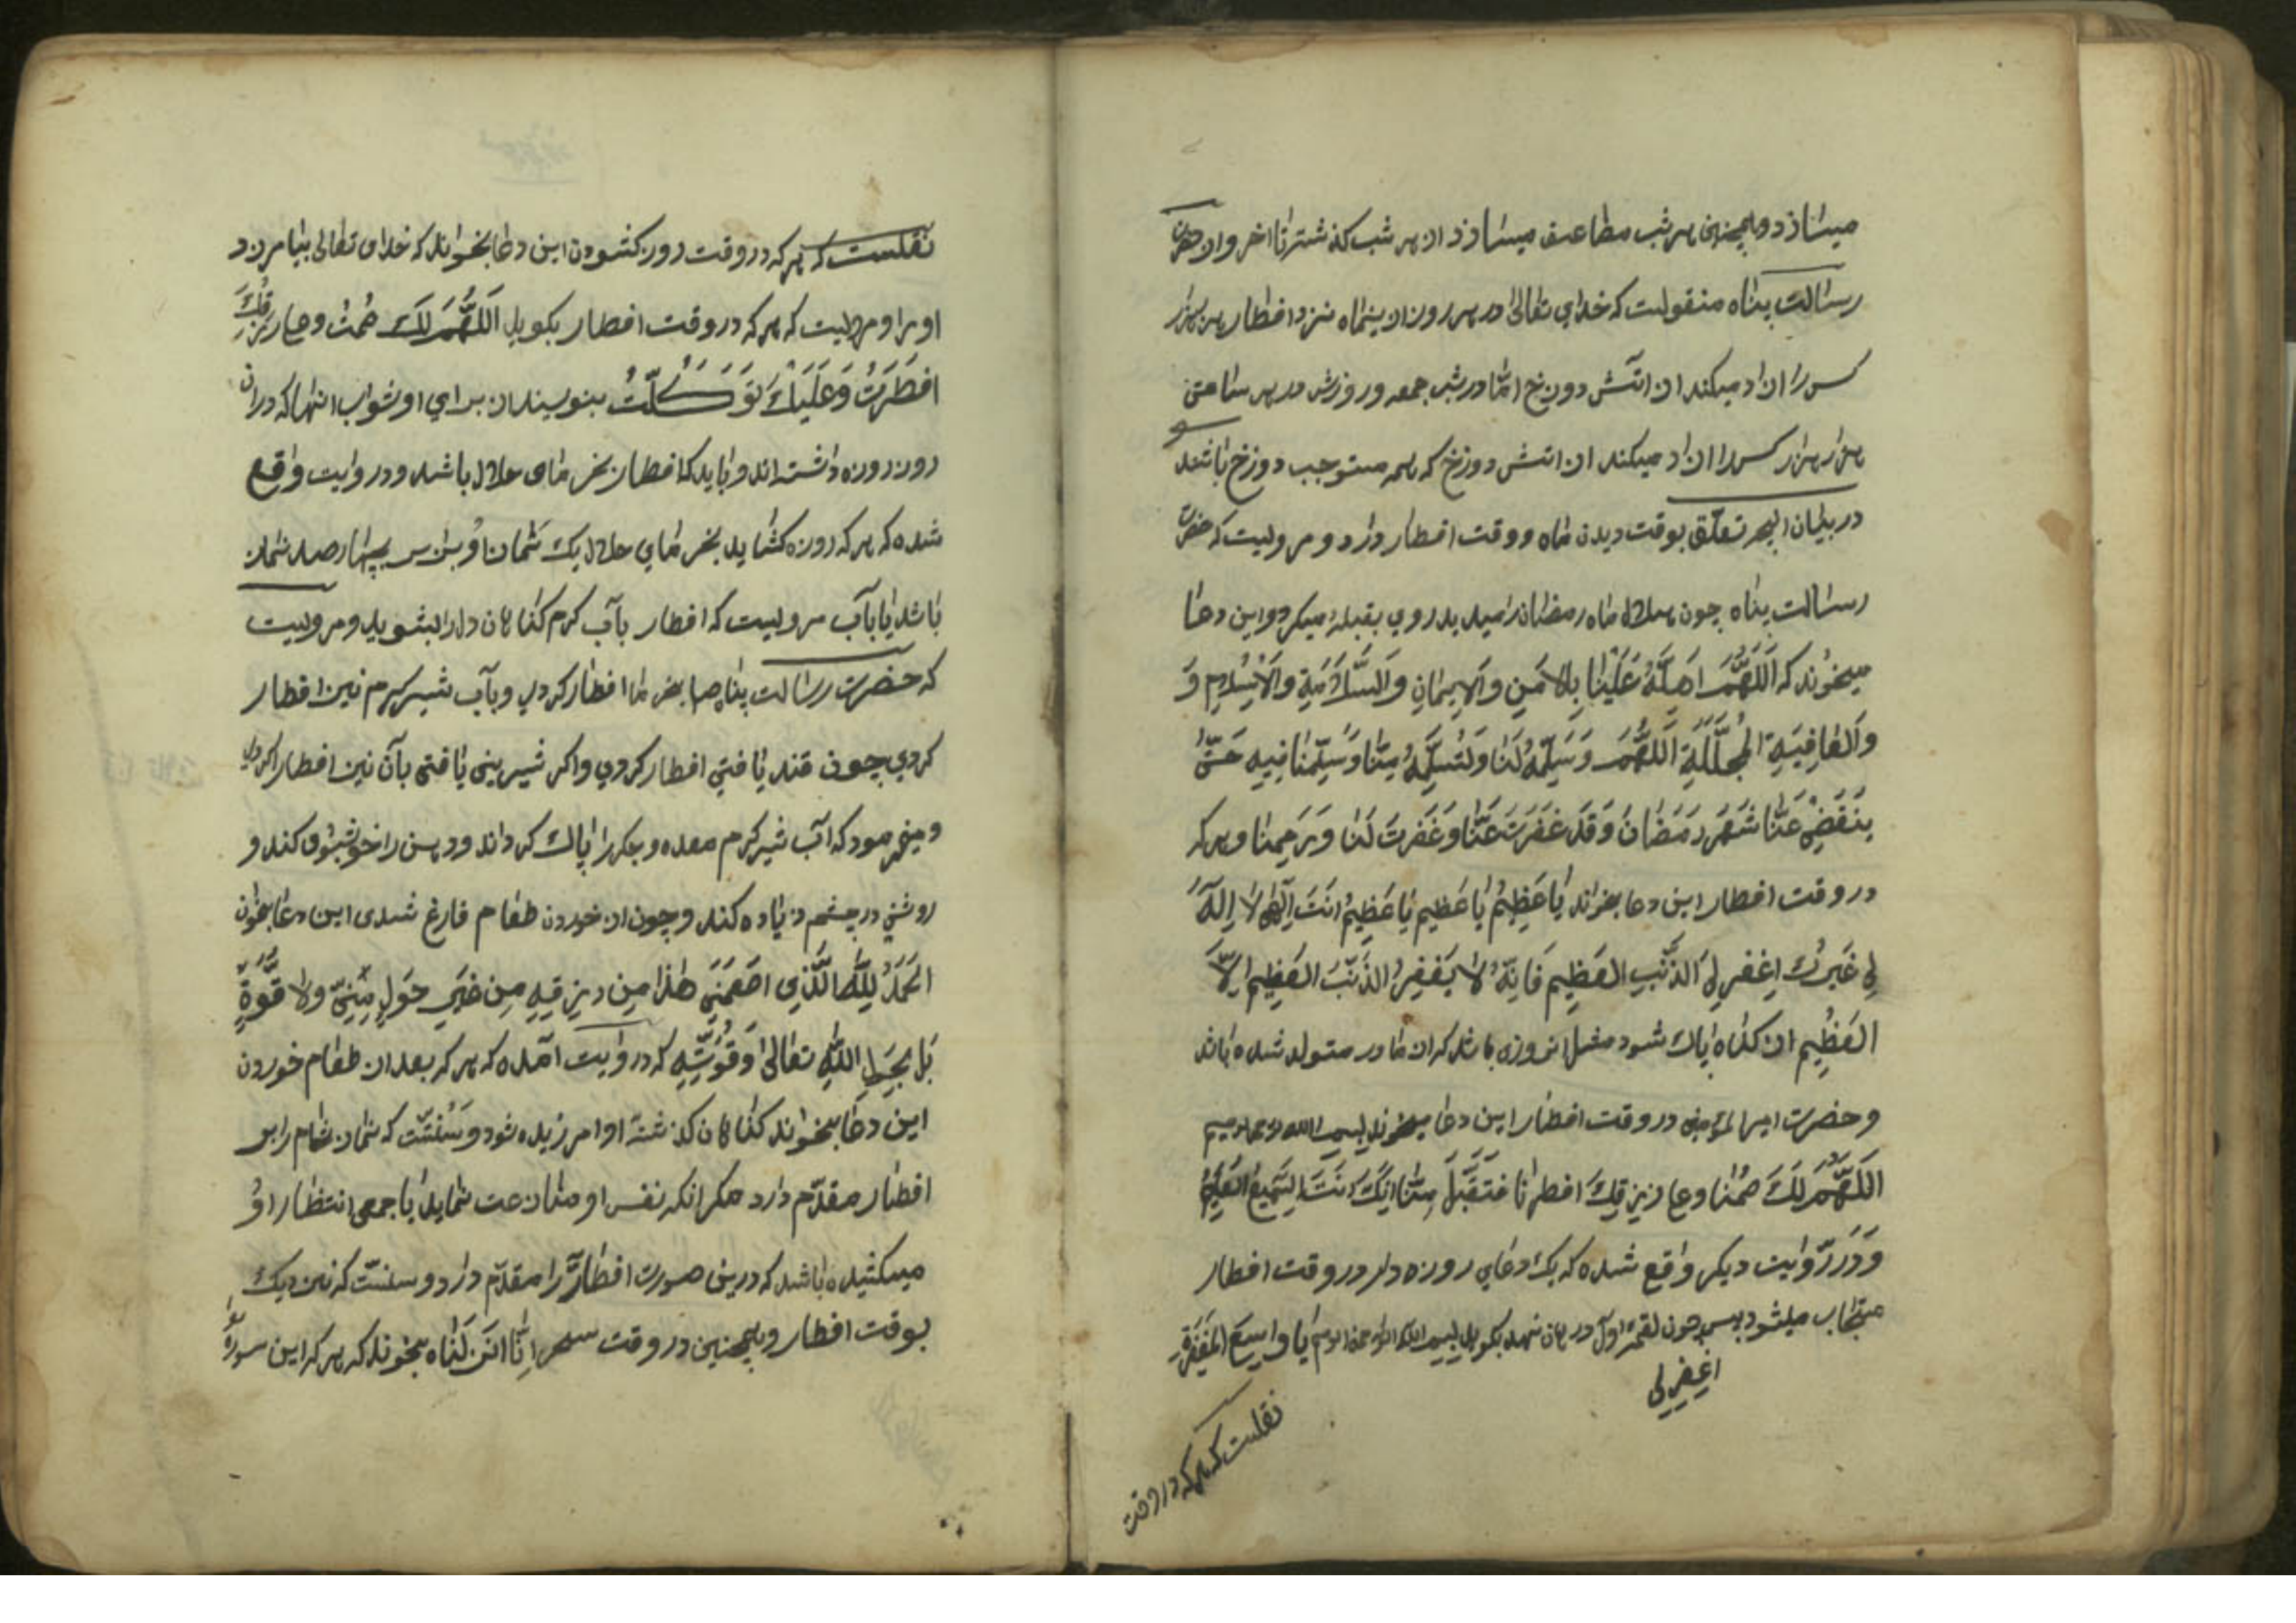 میسازد و همچنین هر شب مضاعف میسازد از هر شب گذشته تا آخر و از حضرت
رسالت پناه منقولست که خدای تعالی در هر روز از ینماه نزد افطار هزار هزار
کس را ازاد میکند از اتش دوزخ اما در شب جمعه و روزش در هر ساعتی
هزار هزار کس را ازاد میکند از اتش دوزخ که همه مستوجب دوزخ باشند
در بیان انچه تعلّق بوقت دیدن ماه و وقت افطار دارد و مرویست که حضرت
رسالت پناه چون هلال ماه رمضان را میدید روی بقبله میکرد و این دعا
میخوند که اَللّهُمَّ اَهِلَّهُ عَلَیْنا بِالاَمنِ وَالاِیمانِ وَالسَّلاَمَةِ وَالاِسْلامِ وَ
وَالعافِیَةِ المُجَلَّلَةِ اَللّهُمَّ وَسَلِّمْهُ لَنا وَتَسَلَّمْهُ مِنّا وَسَلِّمْنا فِیهِ حَتّی
یَنقَضِیَ عَنّا شَهرُ رَمَضانَ وَقَد عَفَوتَ عَنّا وَغَفَرتَ لَنا وَرَحِمتَنا و هر که
در وقت افطار این دعا بخواند یا عَظِیمُ یا عَظِیم یا عَظِیمُ اَنتَ اِلهِی لا اِلهَ
لِی غَیرُكَ اِغفِر لِیَ الذَّنبَ العَظِیمَ فَاِنَّهُ لا یَغفِرُ الذَّنبَ العَظِیمَ اِلاَّ
العَظِیم از کناه پاك شود مثل انروزی که از مادر متولد شده باشد
و حضرت امیر المؤمنین در وقت افطار این دعا میخوند بسم الله الرحمن الرحیم
اَللّهُمَّ لَكَ صُمنا وعلی رِزقِكَ افطرنا فَتَقَبَّل مِنّا اِنَّكَ اَنتَ السَّمِیعُ العَلِیمُ
وَدَر رّوایت دیکر واقع شده که یك دعای روزه دار در وقت افطار
مستجاب میشود پس چون لقمهٔ اوّل در دهان نهد بکوید بسم الله الرحمن الرحیم یا واسِعَ المَغفِرَةِ
اغفِر لی
نقلست که هر که در وقت
نقلست که هر که در وقت روزه کشودن این دعا بخواند که خدای تعالی بیامرزد
او را و مرویست که هر که در وقت افطار بکوید اَللّهُمَّ لَكَ صُمتُ وعلی رِزقِكَ
افطَرتُ وَعَلَیكَ تَوَكَّلتُ بنویسند از برای او ثواب انها که در ان
روز روزه داشته اند و باید که افطار بخرمای حلال باشد و در روایت واقع
شده که هر که روزه کشاید بخرمای حلال یك نماز او برابر بچهارصد نماز
باشد یا بآب مرویست که افطار بآب کرم کناهان دل را بشوید و مرویست
که حضرت رسالت پناه صلی بخرما افطار کردی و بآب شیر کرم نیز افطار
کردی چون قند یافتی افطار کردی و اکر شیرینی یافتی بآن نیز افطار کردی
و میفرمود که آب شیر کرم معده و جکر را پاك کرداند و دهن را خوشبوی کند و
روشنی در چشم زیاده کند و چون از خوردن طعام فارغ شدی این دعا بخوان
الحَمدُ لِلّهِ الَّذِی اطعَمَنِی هذا مِن رِزقِهِ مِن غَیرِ حَولٍ مِنِّی ولا قُوَّةٍ
بَل بِحَولِ اللّهِ تعالی وَقُوَّتِهِ که در روایت آمده که هر که بعد از طعام خوردن
این دعا بخواند کناهان کذشتهٔ او امرزیده شود و سُنّتست که نماز شام را بر
افطار مقدّم دارد مکر انکه نفس او منازعت نماید یا جمعی انتظار او
میکشیده باشد که درین صورت افطار را مقدّم دارد و سنّتست که نزدیك
بوقت افطار و همچنین در وقت سحر اِنّا انزَلناه بخوند که هر که این سوره را